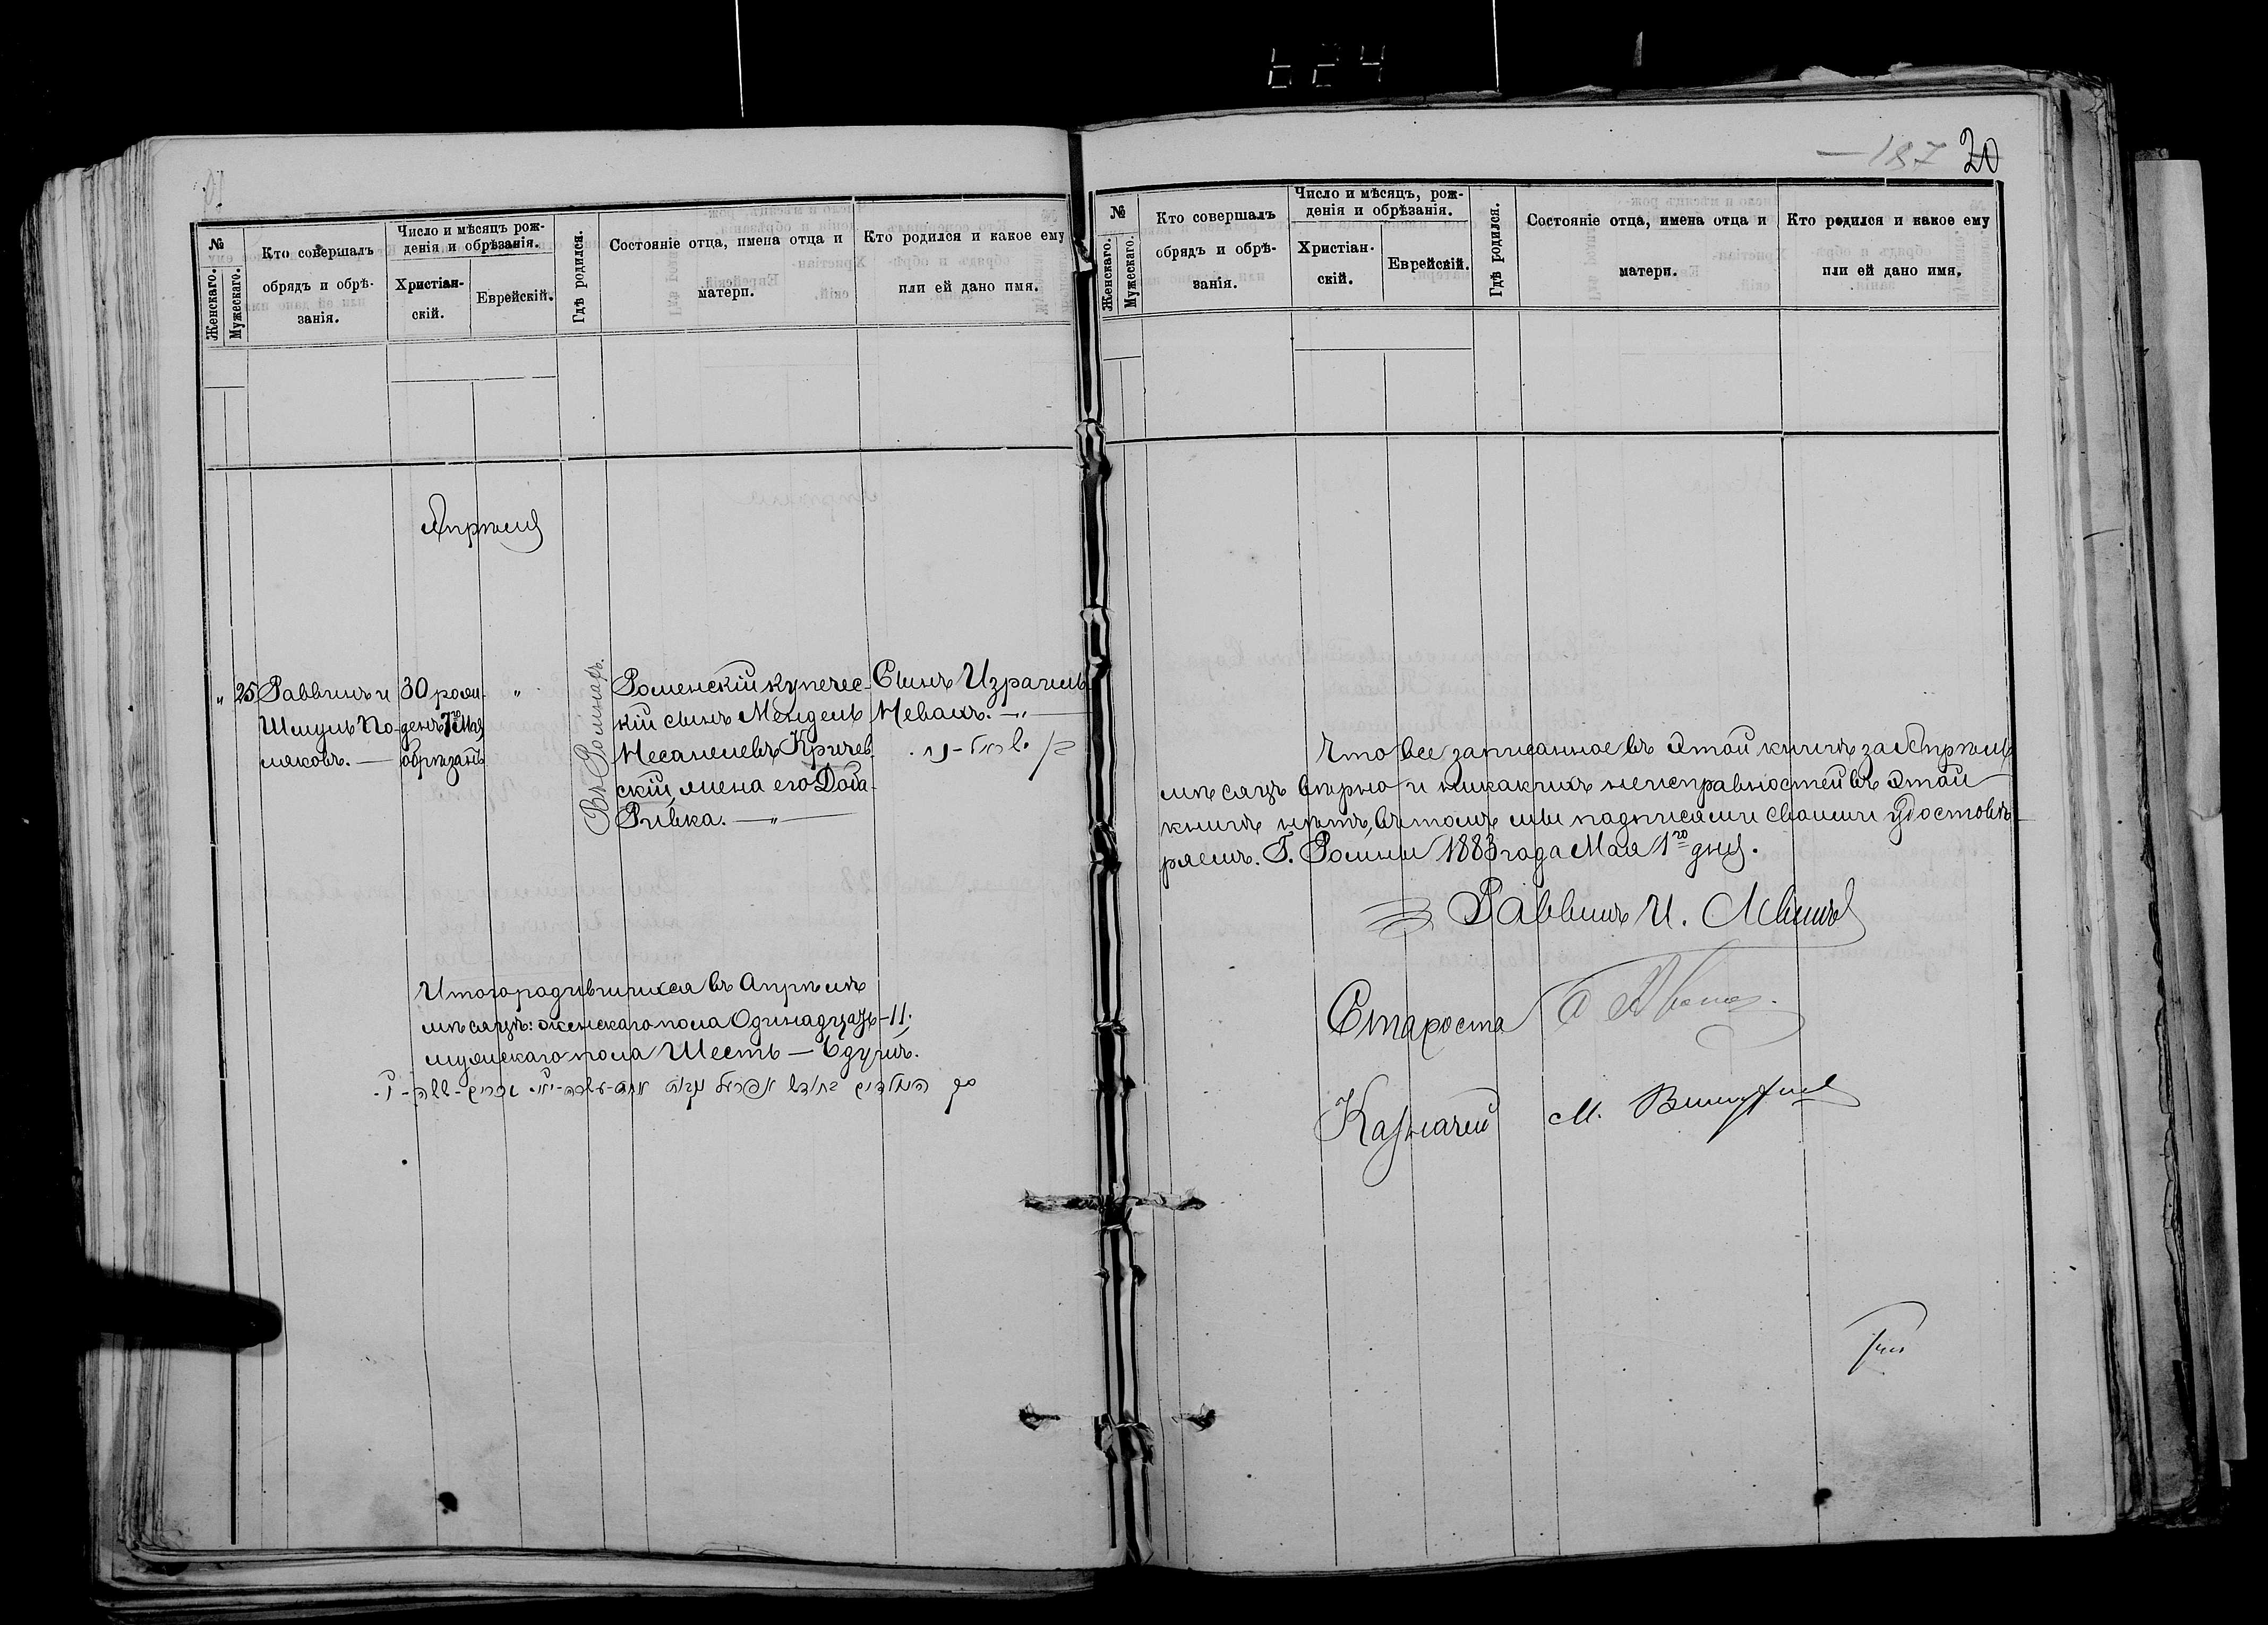 624
187 20
№
Женскаго.
Мужескаго.
Кто совершалъ
обрядъ и обрѣ-
занія.
Число и мѣсяцъ рож-
денія и обрѣзанія.
Христіан-
скій.
Еврейскій.
Гдѣ родился.
Состояніе отца, имена отца и
матери.
Кто родился и какое ему
или ей дано имя.
Апрѣль
" 25
Раввинъ и
Шмуль По-
ляковъ. —
30 роди
день 7го Мая
обрѣзанъ
"
Въ Ромнахъ.
Роменскій купечес-
кій сынъ Мендель
Кричев
скій, жена его Доба-
Ривка. — " —
Сынъ Израиль
Невахъ. — " —
Итого родившихся въ Апрѣлѣ
мѣсяцѣ: женскаго пола Одинадцать - 11.
мужескаго пола Шесть — 6 душъ.
№
Женскаго.
Мужескаго.
Кто совершалъ
обрядъ и обрѣ-
занія.
Число и мѣсяцъ, рож-
денія и обрѣзанія.
Христіан-
скій.
Еврейскій.
Гдѣ родился.
Состояніе отца, имена отца и
матери.
Кто родился и какое ему
или ей дано имя.
Что все записанное въ этой книгѣ за Апрѣль
мѣсяцъ вѣрно и никакихъ неисправностей въ этой
книгѣ нѣтъ, въ томъ мы подписями своими удостовѣ-
ряемъ. Г. Ромны 1883 года Мая 1го дня.
Раввинъ И.
Староста
Казначей М.